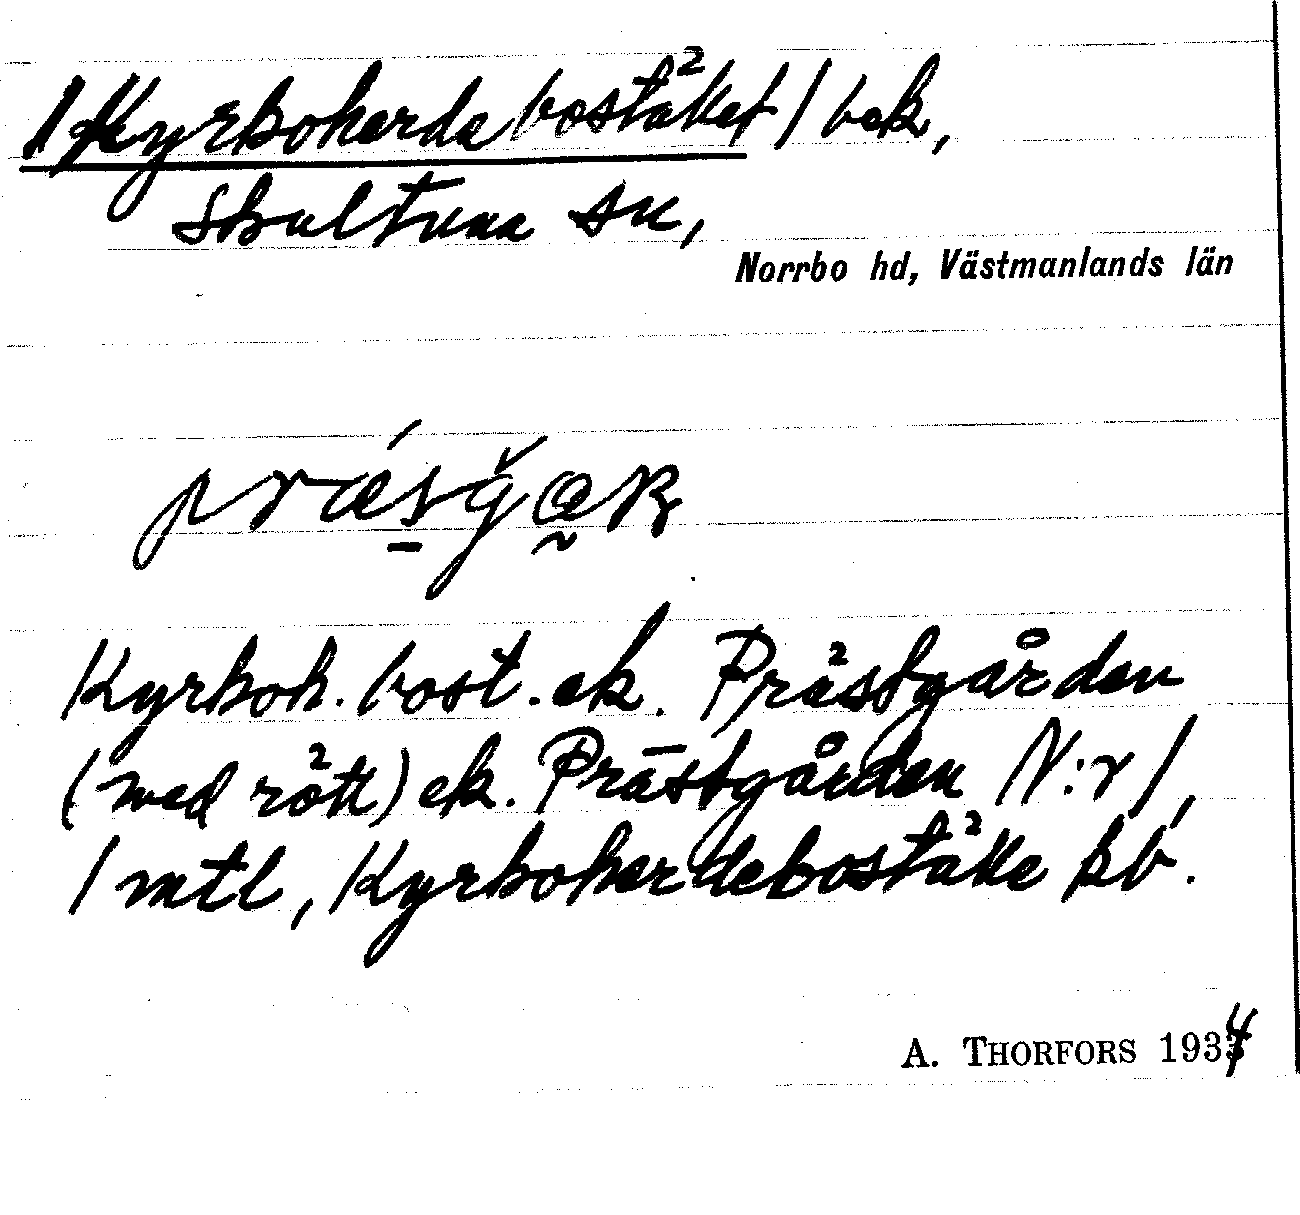 /Kyrkoherdebostället/ bek,
Skultuna sn,
Norrbo hd, Västmanlands län
Kyrkoh. bost. ek. Prästgården
(med rött) ek. Prästgården N:r 1,
1 mtl, Kyrkoherdeboställe kb.
A. THORFORS 1934